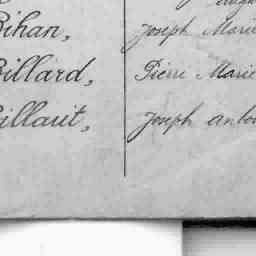 Bihan, Joseph Marie
Billard, Pierre Marie
Billaut, Joseph